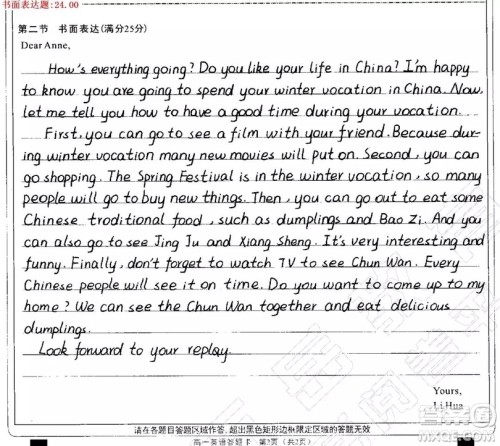 书面表达题:24.00
第二节 书面表达(满分25分)
Dear Anne,
How's everything going? Do you like your life in China? I'm happy
to know you are going to spend your winter vocation in China. Now,
let me tell you how to have a good time during your vocation.
First, you can go to see a film with your friend. Because dur-
ing winter vocation many new movies will put on. Second, you can
go shopping. The Spring Festival is in the winter vocation, so many
people will go to buy new things. Then, you can go out to eat some
Chinese traditional food, such as dumplings and Bao Zi. And you
can also go to see Jing Ju and Xiang Sheng. It's very interesting and
funny. Finally, don't forget to watch TV to see Chun Wan. Every
Chinese people will see it on time. Do you want to come up to my
home? We can see the Chun Wan together and eat delicious
dumplings.
Look forward to your replay.
Yours,
Li Hua
请在各题目答题区域作答,超出黑色矩形边框限定区域的答题无效